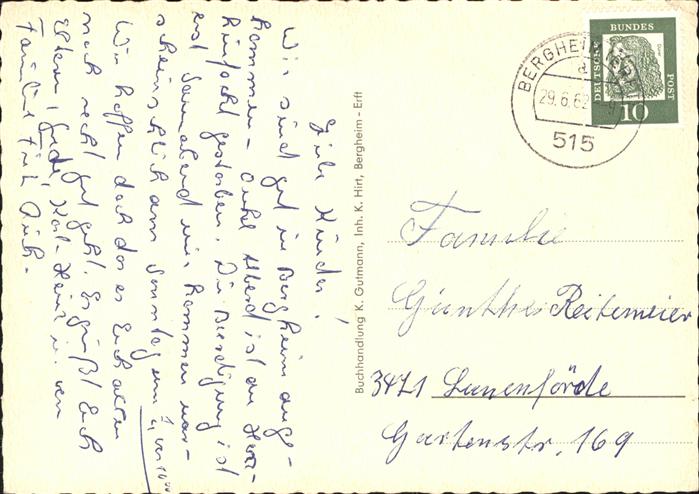 Liebe Kinder!
Wir sind gut in Bergheim ange-
kommen - Onkel Albert ist an Herz-
Infarkt gestorben. Die Beerdigung ist
erst Sonnabend wir kommen war-
scheinlich am Sonntag
Wir hoffen doch das es Euch allen
noch recht gut geht. Es grüßt Euch
Eltern, Karl-Heinz u. von
Familie
Buchhandlung K. Gutmann, Inh. K. Hirt, Bergheim - Erft
BERGHEIM (ERFT)
a
29.6.62
515
DEUTSCHE BUNDESPOST
Dürer
10
Familie
Günther Reitemeier
3471 Lauenförde
Gartenstr. 169